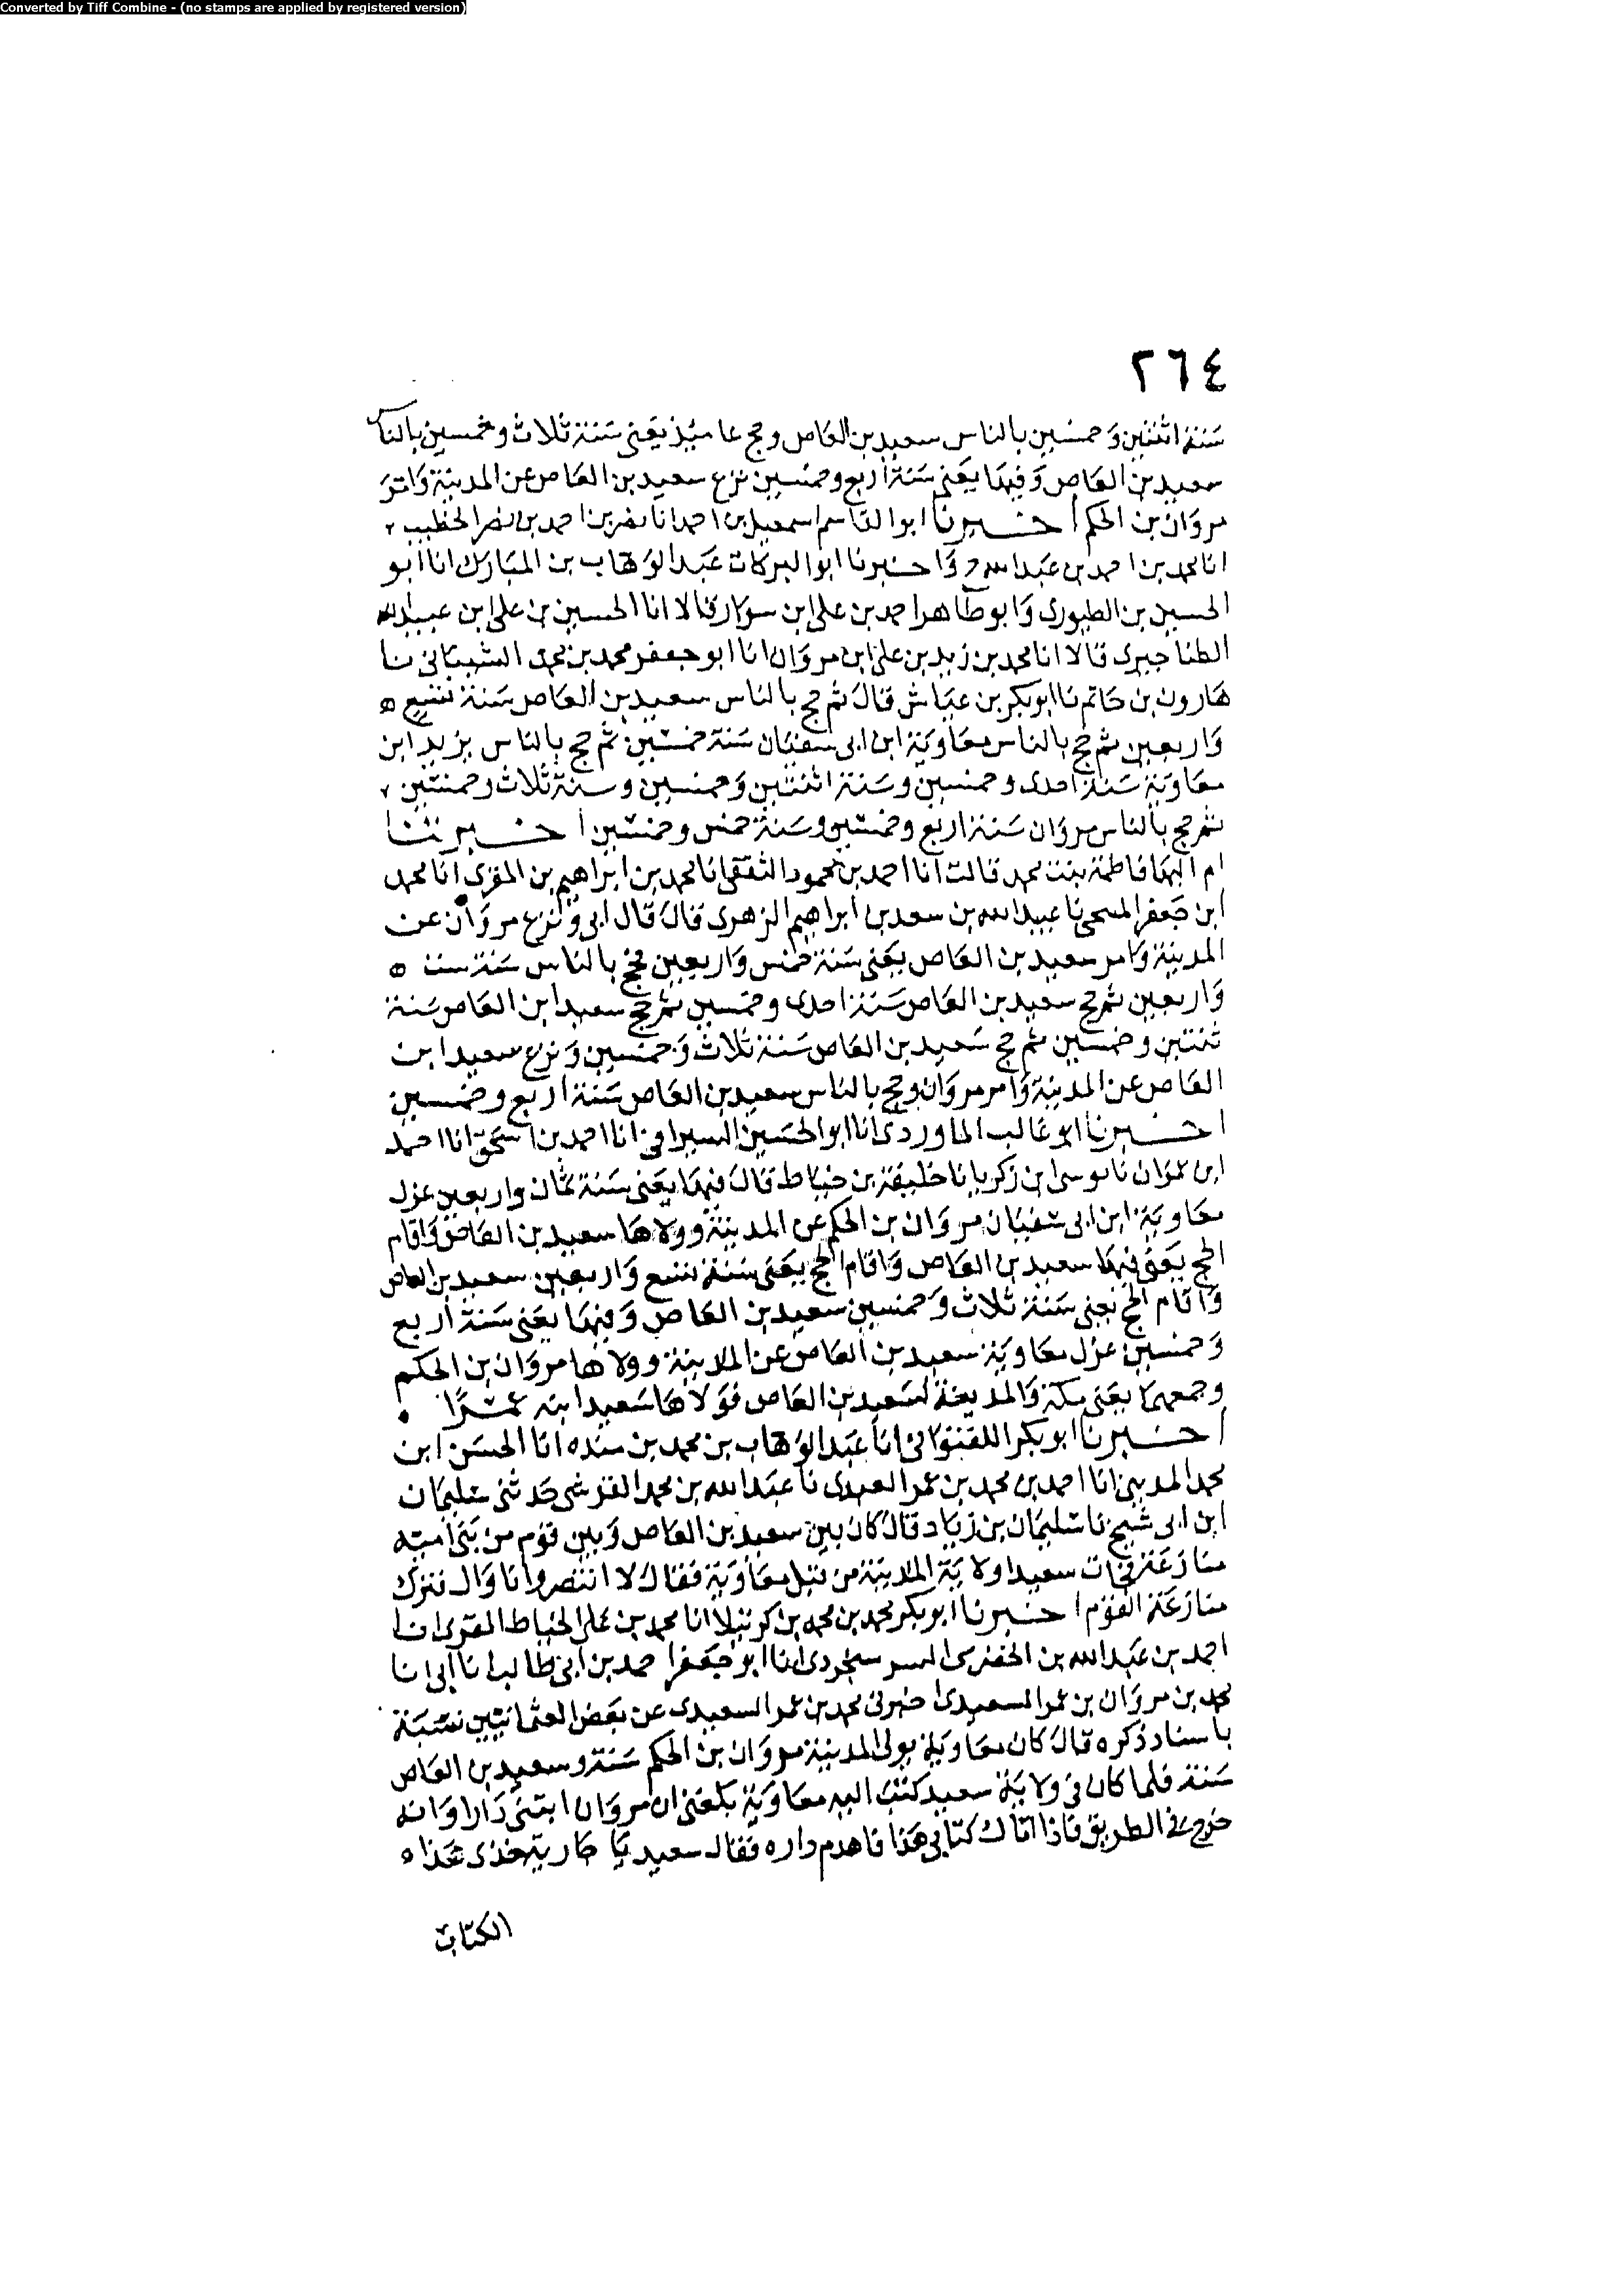 Converted by Tiff Combine - (no stamps are applied by registered version)
٢٦٤
سنة اثنتين وخمسين بالناس سعيد بن العاص وحج عاميذ يعني سنة ثلاث وخمسين بالناس
سعيد بن العاص وفيها يعني سنة اربع وخمسين نزع سعيد بن العاص عن المدينة وامر
مروان بن الحكم اخبرنا ابو القاسم اسمعيل بن احمد انا نصر بن احمد بن نصر الخطيب
انا محمد بن احمد بن عبد الله ح واخبرنا ابو البركات عبد الوهاب بن المبارك انا ابو
الحسين بن الطيوري وابو طاهر احمد بن علي ابن سوار قالا انا الحسين بن علي ابن عبيد الله
الطناجيري قالا انا محمد بن زيد بن علي ابن مروان انا ابو جعفر محمد بن محمد الشيباني نا
هارون بن حاتم نا ابو بكر بن عياش قال ثم حج بالناس سعيد بن العاص سنة تسع
واربعين ثم حج بالناس معاوية ابن ابي سفيان سنة خمسين ثم حج بالناس يزيد ابن
معاوية سنة احدى وخمسين وسنة اثنتين وخمسين وسنة ثلاث وخمسين
ثم حج بالناس مروان سنة اربع وخمسين وسنة خمس وخمسين اخبرتنا
ام البها فاطمة بنت محمد قالت انا احمد بن محمود الثقفي انا محمد بن ابراهيم بن المقري انا محمد
ابن جعفر المنبجي نا عبيد الله بن سعد بن ابراهيم الزهري قال قال ابي ونزع مروان عن
المدينة وامر سعيد بن العاص يعني سنة خمس واربعين فحج بالناس سنة ست
واربعين ثم حج سعيد بن العاص سنة احدى وخمسين ثم حج سعيد ابن العاص سنة
ثنتين وخمسين ثم حج سعيد بن العاص سنة ثلاث وخمسين ونزع سعيد ابن
العاص عن المدينة وامر مروان وحج بالناس سعيد بن العاص سنة اربع وخمسين
اخبرنا ابو غالب الماوردي انا ابو الحسين السيرافي انا احمد بن اسحق انا احمد
ابن عمران نا موسى ابن زكريا نا خليفة بن خياط قال فيها يعني سنة ثمان واربعين عزل
معاوية ابن ابي سفيان مروان بن الحكم عن المدينة وولاها سعيد بن العاص واقام
الحج يعني فيها سعيد بن العاص واقام الحج يعني سنة تسع واربعين سعيد بن العاص
واقام الحج يعني سنة ثلاث وخمسين سعيد بن العاص وفيها يعني سنة اربع
وخمسين عزل معاوية سعيد بن العاص عن المدينة وولاها مروان بن الحكم
وجمعهما يعني مكة والمدينة لسعيد بن العاص فولاها سعيد ابنه عمرا
اخبرنا ابو بكر اللفتواني انا عبد الوهاب بن محمد بن منده انا الحسن ابن
محمد المديني انا احمد بن محمد بن عمر العبدي نا عبد الله بن محمد القرشي حدثني سليمان
ابن ابي شيخ نا سليمان بن زياد قال كان بين سعيد بن العاص وبين قوم من بني امية
منازعة فجات سعيدا ولاية المدينة من قبل معاوية فقال لا انتصر وانا وال فترك
منازعة القوم اخبرنا ابو بكر محمد بن محمد بن كرتيلا انا محمد بن علي الخياط المقري انا
احمد بن عبد الله بن الخضر السوسنجردي انا ابو جعفر احمد بن ابي طالب انا ابي نا
محمد بن مروان بن عمر السعيدي اخبرني محمد بن عمر السعيدي عن بعض العثمانيين نسبة
باسناد ذكره قال كان معاوية يولي المدينة مروان بن الحكم سنة وسعيد بن العاص
سنة فلما كان في ولاية سعيد كتب اليه معاوية بلغني ان مروان ابتنى دارا وانه
خرج في الطريق فاذا اتاك كتابي هذا فاهدم داره فقال سعيد يا جارية خذي هذا
الكتاب